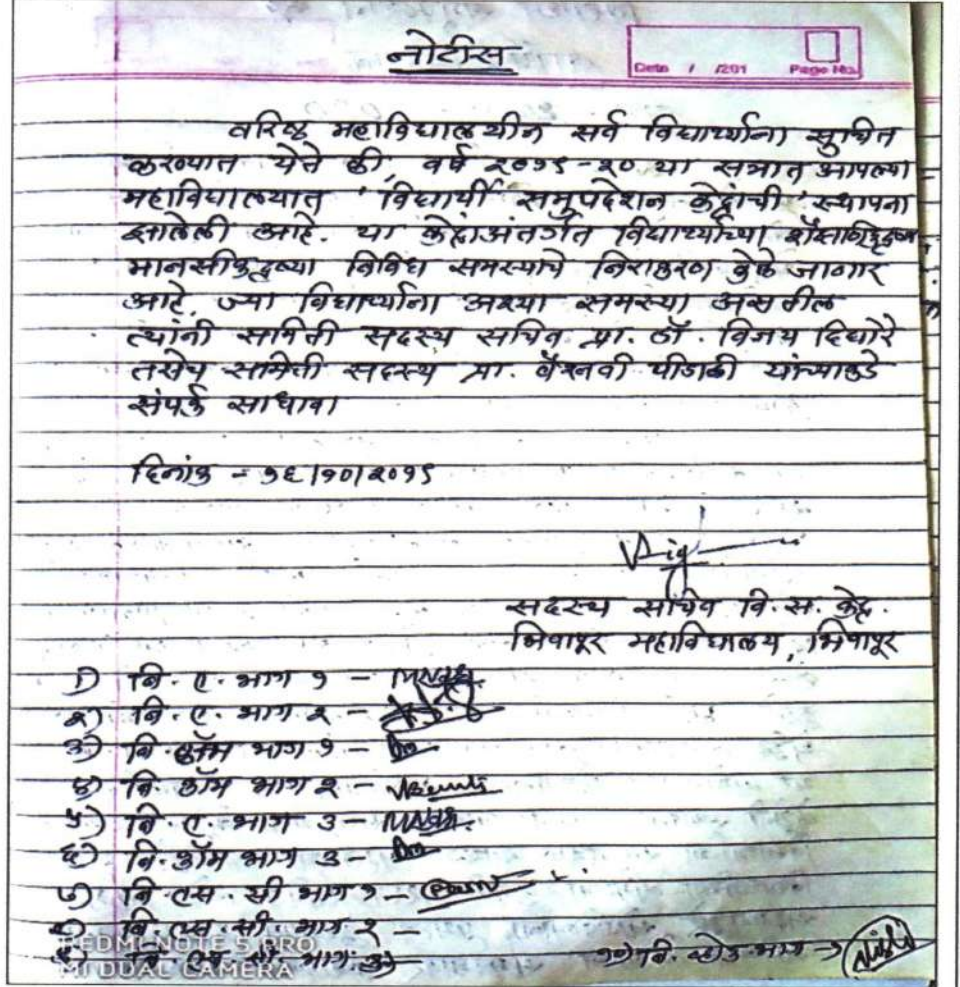 नोटीस
Date / /201 Page No.
वरिष्ठ महाविद्यालयीन सर्व विद्यार्थ्यांना सुचित
करण्यात येते की, वर्ष २०१९-२० या सत्रात आपल्या
महाविद्यालयात 'विद्यार्थी समुपदेशन केंद्रांची' स्थापना
झालेली आहे. या केंद्राअंतर्गत विद्यार्थ्यांच्या
मानसीकदृष्ट्या विविध समस्याचे निराकरण केले जाणार
आहे. ज्या विद्यार्थ्यांना अश्या समस्या असतील
त्यांनी समिती सदस्य सचिव प्रा. डॉ. विजय दिघोरे
तसेच समिती सदस्य प्रा. वैष्णवी यांच्याकडे
संपर्क साधावा
दिनांक - १६/१०/२०१९
सदस्य सचिव वि. स. केंद्र.
भिवापूर महाविद्यालय, भिवापूर
१) बि. ए. भाग १ -
२) बि. ए. भाग २ -
३) बि कॉम भाग १ -
४) बि. कॉम भाग २ -
५) बि. ए. भाग ३ -
६) बि. कॉम भाग ३ -
७) बि एस. सी भाग १ -
८) बि. एस. सी. भाग २ -
९) बि. एस. सी. भाग ३ -
१०) बि.
REDMI NOTE 5 PRO
MI DUAL CAMERA